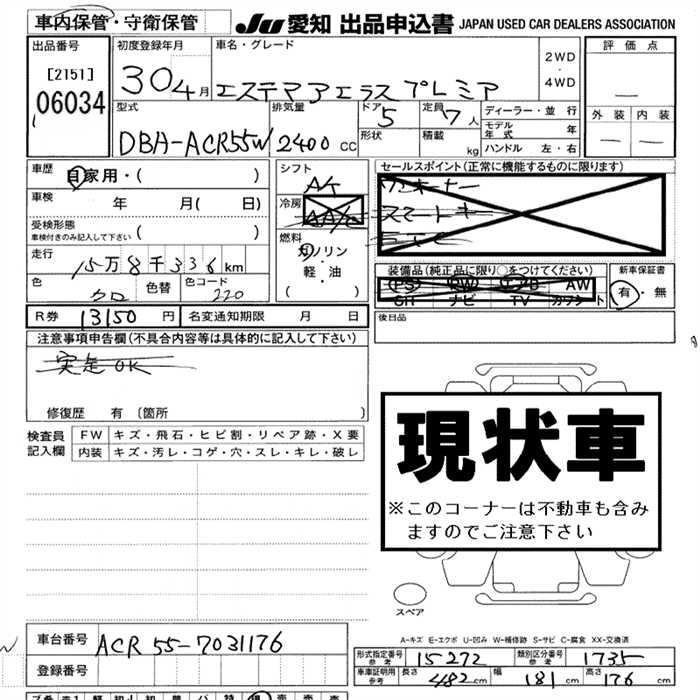 車内保管・守衛保管 JU 愛知 出品申込書 JAPAN USED CAR DEALERS ASSOCIATION
出品番号 初度登録年月 車名・グレード 2WD ・ 4WD 評価点
[2151] 30 4月 エステマ アエラス プレミア —
06034 型式 排気量 ドア 5 定員 7人 ディーラー・並行 外装 内装
DBA-ACR55W 2400 CC 形状 積載 kg モデル年式 年 — —
ハンドル 左・右
車歴 自家用・( ) シフト A/T セールスポイント(正常に機能するものに限ります)
車検 年 月( 日) 冷房
受検形態 車検付きのみ記入して下さい ( ) 燃料 スマートキー
走行 15万8千336km ガソリン ETC
軽・油 装備品(純正品に限り○をつけてください) 新車保証書
色 クロ 色替 色コード 220 ( ) PS PW エアB AW 有・無
ナビ TV
R券 13150円 名変通知期限 月 日 後日品
注意事項申告欄(不具合内容等は具体的に記入して下さい)
実走OK
修復歴 有 〔箇所
検査員 FW キズ・飛石・ヒビ割・リペア跡・X要
記入欄 内装 キズ・汚レ・コゲ・穴・スレ・キレ・破レ
現状車
※このコーナーは不動車も含み
ますのでご注意下さい
スペア
A-キズ E-エクボ U-凹み W-補修跡 S-サビ C-腐食 XX-交換済
車台番号 ACR 55-7031176
形式指定番号 参考 15272 類別区分番号 参考 1735
登録番号
車庫証明用 参考 長さ 482cm 幅 181cm 高さ 176cm